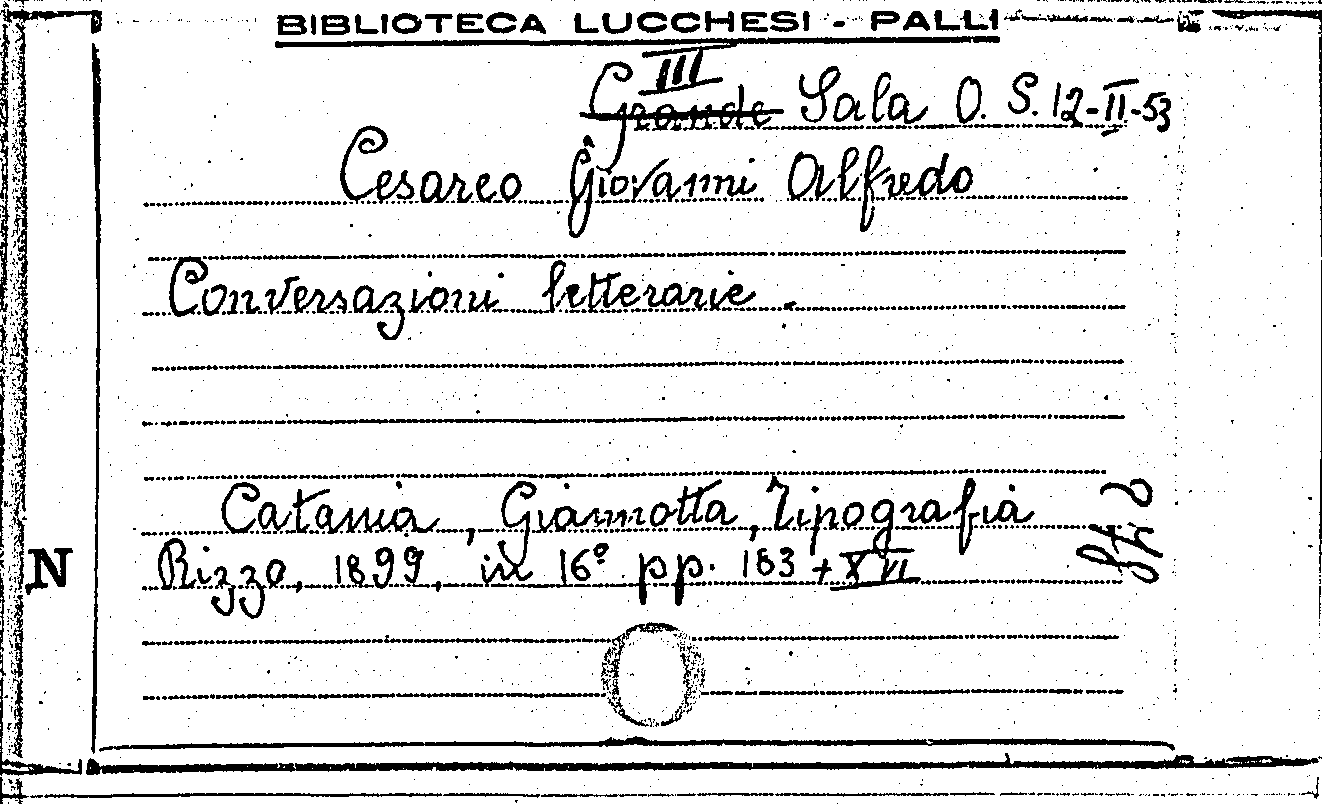 BIBLIOTECA LUCCHESI - PALLI
III
Grande Sala O. S. 12-II-53
Cesareo Giovanni Alfredo
Conversazioni letterarie.
Catania, Giannotta, Tipografia
Rizzo, 1899, in 16° pp. 183 + XVI
N